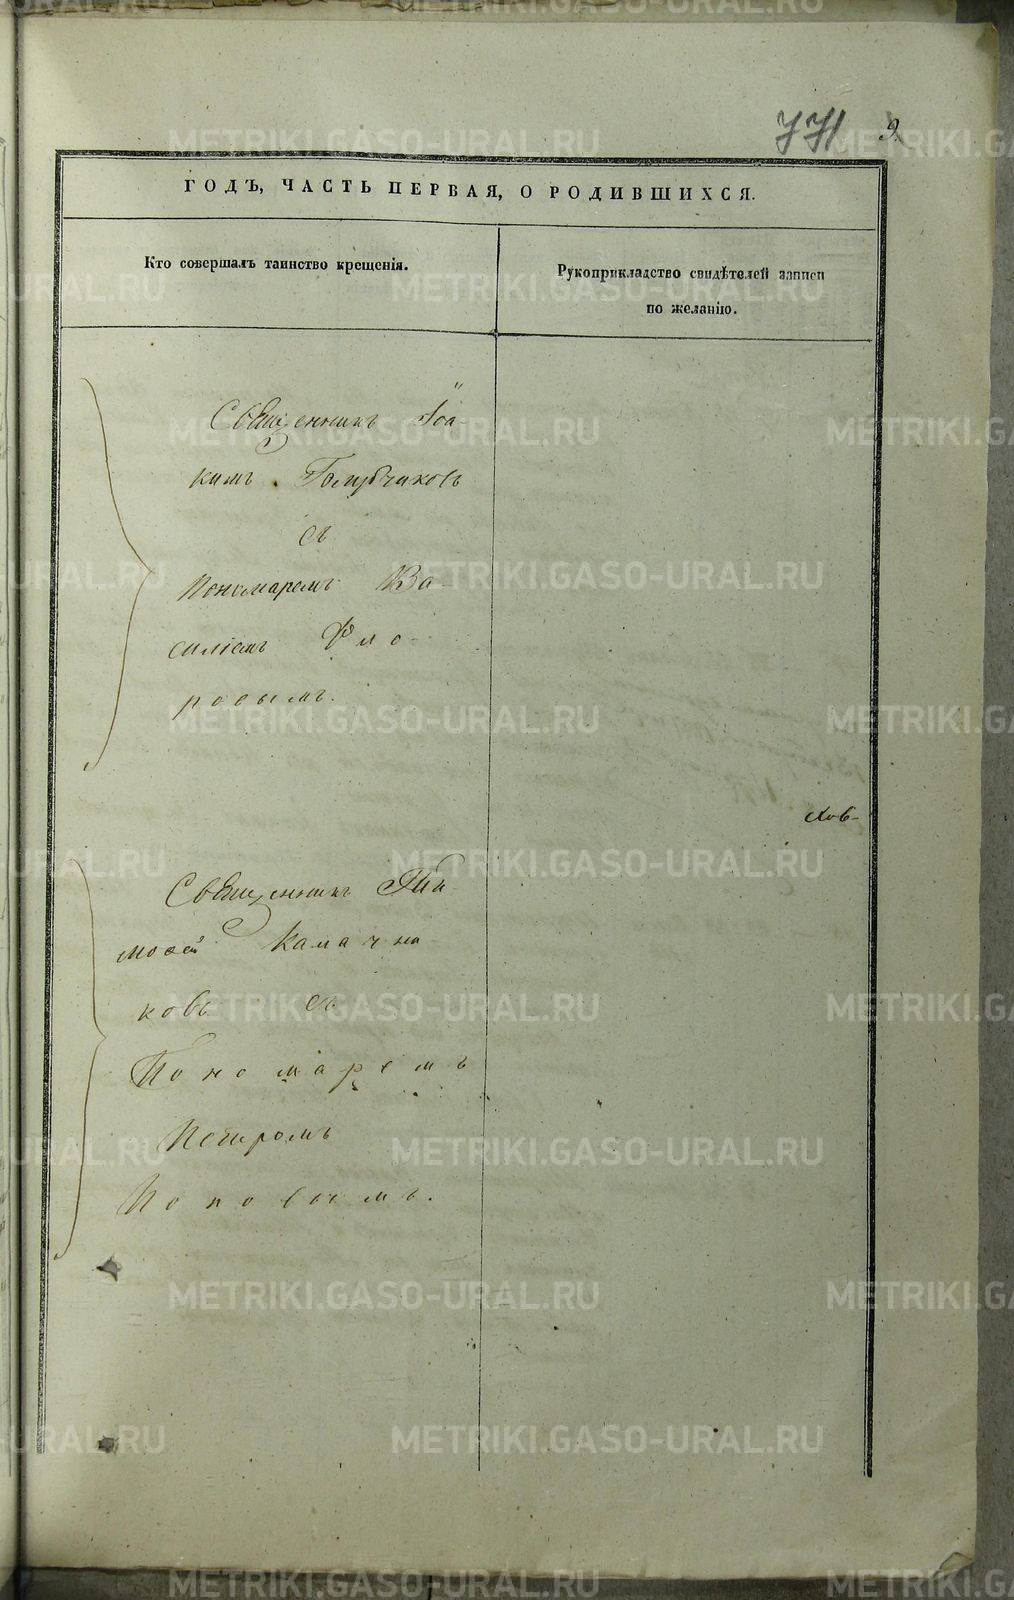 771 9.
ГОДЪ, ЧАСТЬ ПЕРВАЯ, О РОДИВШИХСЯ.
Кто совершалъ таинство крещенія.
Рукоприкладство свидѣтелей записи
по желанію.
Священникъ Іоа-
кимъ Голубчиковъ
съ
Пономаремъ Ва
силіемъ Фло-
ровымъ.
Священникъ Ти
моѳей
ковъ съ
Пономаремъ
Петромъ
Поповымъ.
METRIKI.GASO-URAL.RU